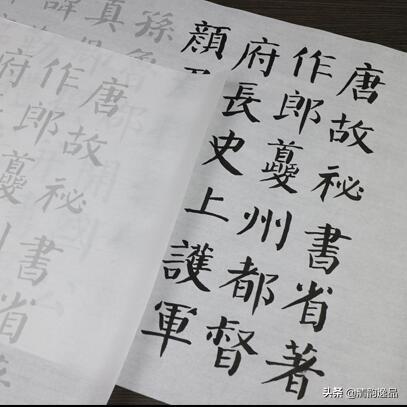 唐故祕書省著
作郎夔州都督
府長史上護軍
顏
孫
真
諱
唐故祕書省
作郎
府
头条 @清韵逸品